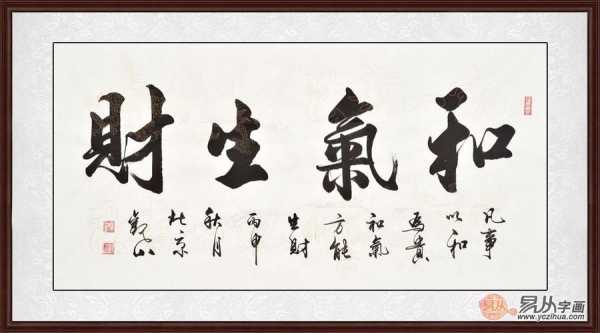 和氣生財
凡事
以和
為貴
和氣
方能
生財
丙申
秋月
於京
觀山
易从字画
www.yczihua.com